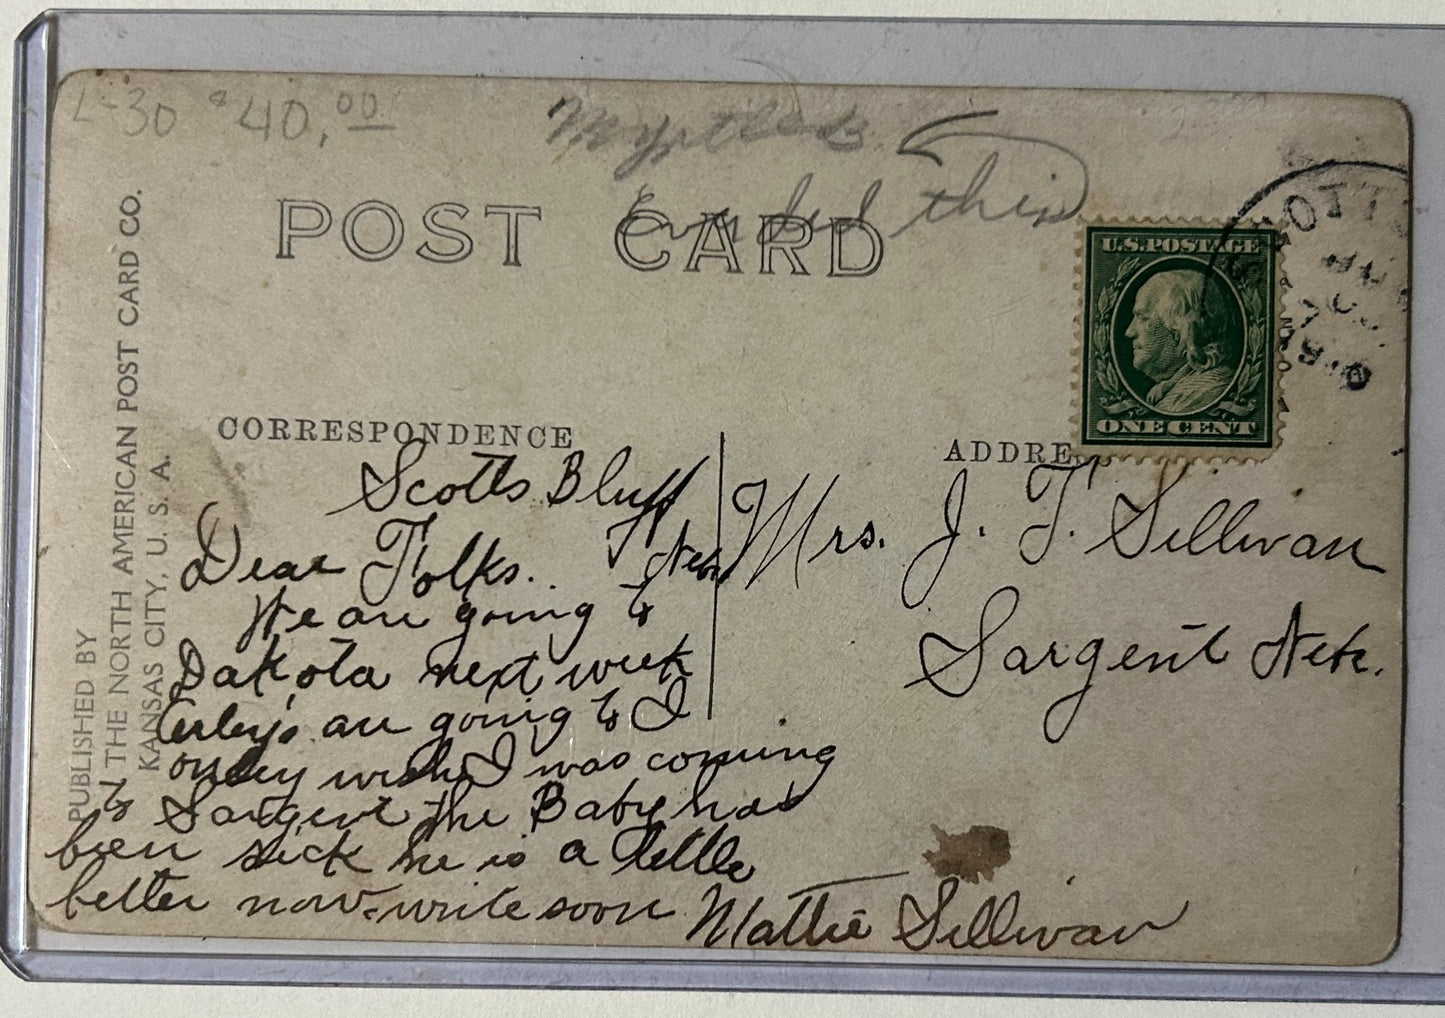 L-30 $40.00
this
POST CARD
U.S. POSTAGE
ONE CENT
PUBLISHED BY
THE NORTH AMERICAN POST CARD CO.
KANSAS CITY, U. S. A.
CORRESPONDENCE
Scotts Bluff
Neb.
Dear Folks.
We are going to
Dakota next week
are going to I
wish I was coming
to Sargent the Baby has
bien sick he is a little
better now. write soon
Mattie Sillivan
ADDRESS
Mrs. J. T. Sillivan
Sargent Neb.